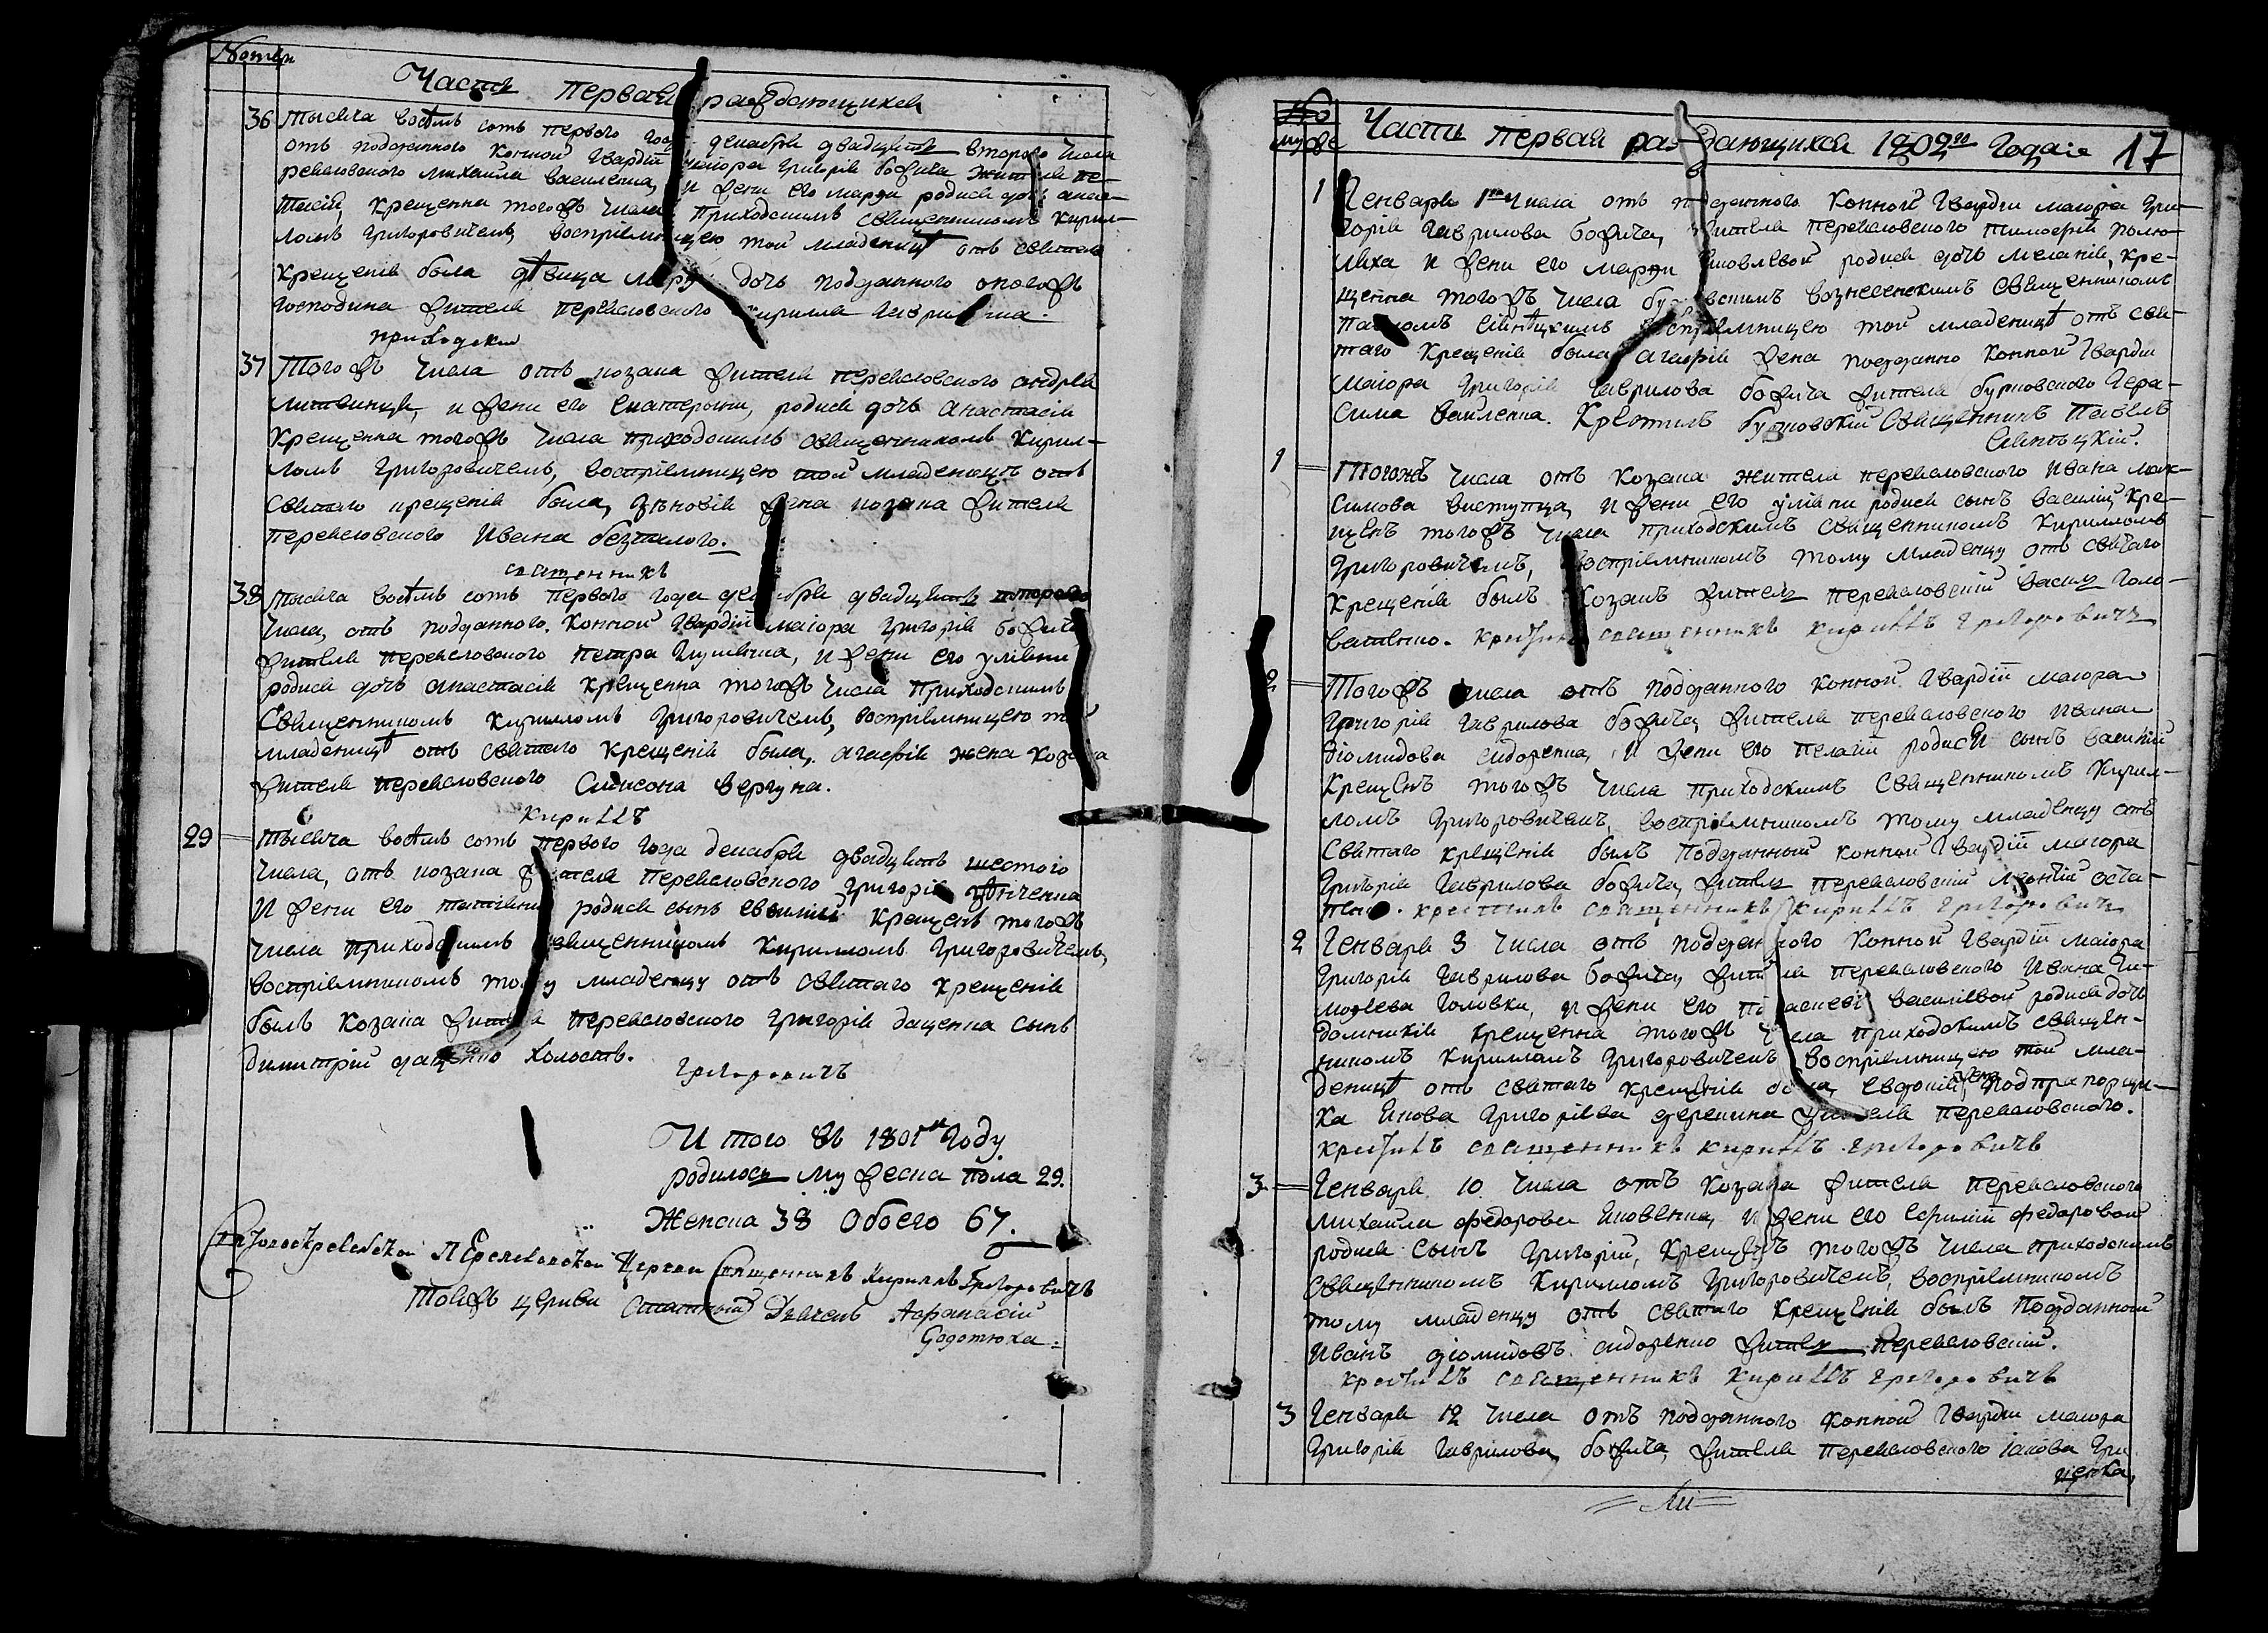 Номеръ
Часть первая раждающихся
36 Тысяча восѣмъ сотъ первого года декабря двадцать второго числа
отъ подданного Конной Гвардіи маіора Григорія Божича жителя пе-
реяловского Михаила Василенка, и жени его Марфи родися дочь анас-
тасія, крещенна тогожъ числа приходскимъ священникомъ Кирил-
ломъ Григоровичемъ, воспріемницею той младеницѣ отъ святаго
крещенія была дѣвица дочь подданного оногожъ
господина жителя переяловского Кирила
приходскій
37 Тогожъ числа отъ козака жителя переяловского андрея
литвинця, и жени его екатерыни, родися дочь анастасія
крещенна тогожъ числа приходскимъ священникомъ Кирил-
ломъ Григоровичемъ, воспріемницею той младеницѣ отъ
святаго крещенія была, зѣновія жена козака жителя
переяловского Ивана безпалого.
священникъ
38 Тысяча восѣмъ сотъ первого года декабря двадцать второго
числа, отъ подданного Конной Гвардіи маіора Григорія Божича
жителя переяловского Петра и жени его уліяни
родися дочь анастасія крещенна тогожъ числа приходскимъ
священникомъ Кирилломъ Григоровичемъ, воспріемницею той
младеницѣ отъ святаго крещенія была, агафія жена козака
жителя переяловского Симеона Вергуна.
Кириллъ
29 Тысяча восѣмъ сотъ первого года декабря двадцать шестого
числа, отъ козака жителя переяловского Григорія
и жени его татіяни родися сынъ крещенъ тогожъ
числа приходскимъ священникомъ Кирилломъ Григоровичемъ,
воспріемникомъ тому младенцу отъ святаго крещенія
былъ козака жителя переяловского Григорія даценка сынъ
димитрій даценко холостъ.
Григоровичъ
И того въ 1801м Году
родилось мужеска пола 29.
Женска 38 Обоего 67.
Переяловской Церкви Священникъ Кириллъ Григоровичъ
Тояжъ церкви Дьячекъ Афанасій
Додотюка
No
му же Часть первая раждающихся 1802го Года 17
1 Генваря 1го числа отъ подданного Конной Гвардіи маіора Гри-
горія Гаврилова Божича, жителя переяловского тимофія полю-
ляха и жени его марфи Яковлевой родися дочь меланія, кре-
щенна тогожъ числа вознесенскимъ священникомъ
Павломъ воспріемницею той младеницѣ отъ свя-
таго крещенія была агафія жена подданно Конной Гвардіи
маіора Григорія Гаврилова Божича жителя бурковского Гера-
сима Крестилъ бурковскій Священникъ Павелъ

1 Тогожъ числа отъ козака жителя переяловского Ивана Мак-
симова Виступца, и жени его уліяни родися сынъ василій, кре-
щенъ тогожъ числа приходскимъ священникомъ Кирилломъ
Григоровичемъ, воспріемникомъ тому младенцу отъ святаго
крещенія былъ козакъ житель переяловскій Голо-
ватенко. крестилъ священникъ кириллъ григоровичъ
2 Тогожъ числа отъ подданного Конной Гвардіи маіора
Григорія Гаврилова Божича, жителя переяловского Ивана
діомидова сидоренка, и жени его пелагіи родися сынъ василій
крещенъ тогожъ числа приходскимъ священникомъ Кирил-
ломъ Григоровичемъ, воспріемникомъ тому младенцу отъ
святаго крещенія былъ подданный Конной Гвардіи маіора
Григорія Гаврилова Божича, житель переяловскій оста-
крестилъ священникъ кириллъ григоровичъ
2 Генваря 3 числа отъ подданного Конной Гвардіи маіора
Григорія Гаврилова Божича, жителя переяловского Ивана Ти-
мофеева Головки, и жени его василіевой родися дочь
домникія крещенна тогожъ числа приходскимъ священ-
никомъ Кирилломъ Григоровичемъ воспріемницею той мла-
деницѣ отъ святаго крещенія была, евдокія жена подпрапорщи-
ка Якова Григоріева жителя переяловского.
крестилъ священникъ кириллъ григоровичъ
3 Генваря 10 числа отъ козака жителя переяловского
михаила федорова Яковенка, и жени его федоровой
родися сынъ Григорій, крещенъ тогожъ числа приходскимъ
священникомъ Кирилломъ Григоровичемъ, воспріемникомъ
тому младенцу отъ святаго крещенія былъ подданный
Иванъ діомидовъ сидоренко житель переяловскій.
крестилъ священникъ кириллъ григоровичъ
3 Генваря 12 числа отъ подданного Конной Гвардіи маіора
Григорія Гаврилова Божича, жителя переяловского іакова Гри
ценка,